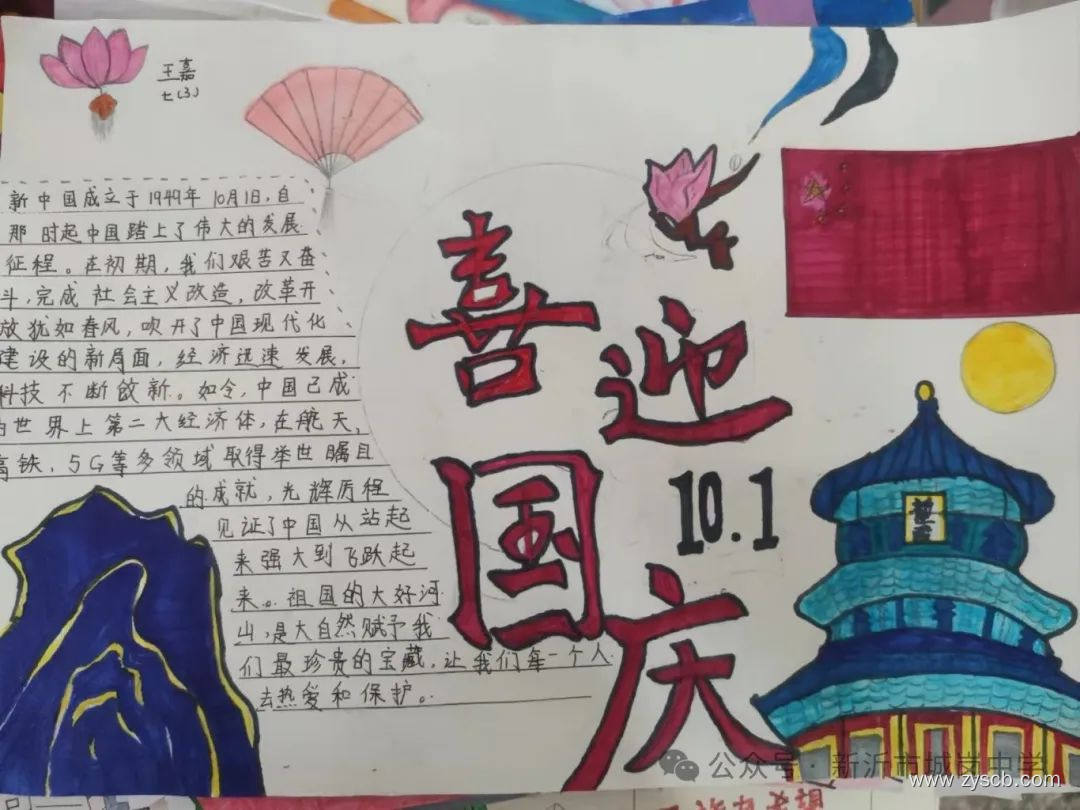 王嘉
七(3)
新中国成立于1949年10月1日,自
那时起中国踏上了伟大的发展
征程。在初期,我们艰苦又奋
斗,完成社会主义改造,改革开
放犹如春风,吹开了中国现代化
建设的新局面,经济迅速发展,
科技不断啟新。如今,中国已成
世界上第二大经济体,在航天,
高铁,5G等多领域取得举世瞩目
的成就,光辉历程
见证了中国从站起
来强大到飞跃起
来。祖国的大好河
山,是大自然赋予我
们最珍贵的宝藏,让我们每一个人
去热爱和保护。
喜迎
国庆
10.1
公众号·新沂市城岗中学
www.zyscb.com